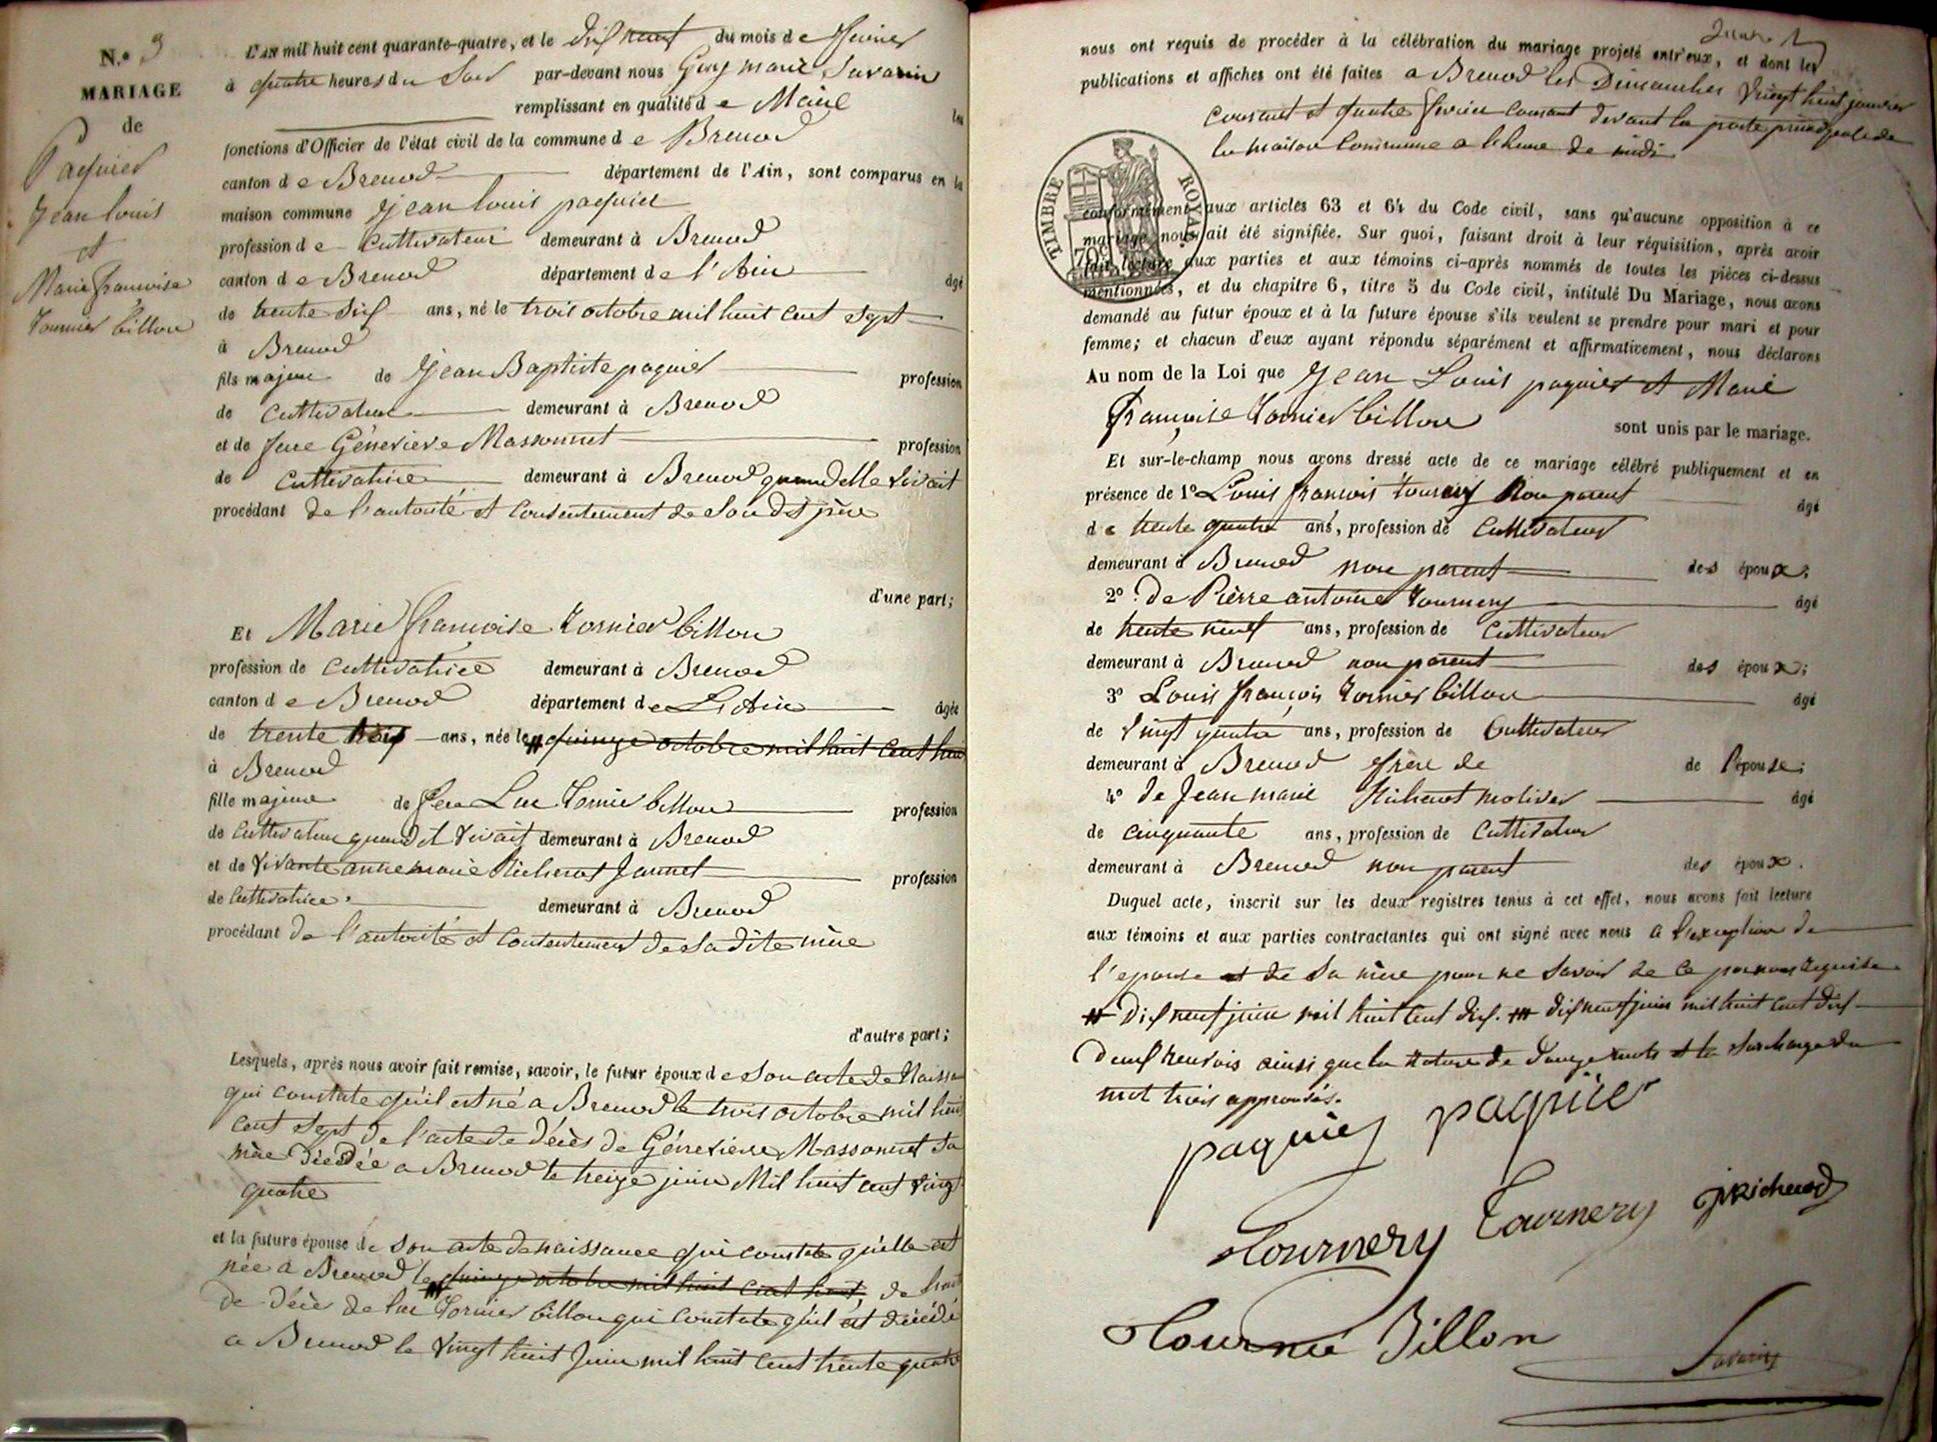 N.° 3
MARIAGE
de
Paquier
Jean louis
et
Marie françoise
Tournier billon
L'AN mil huit cent quarante-quatre, et le dix neuf du mois de fevrier
à quatre heures du Soir par-devant nous Guy marie Savarin
remplissant en qualité de Maire les
fonctions d'Officier de l'état civil de la commune de Brenod
canton de Brenod département de l'Ain, sont comparus en la
maison commune Jean louis paquier
profession de Cultivateur demeurant à Brenod
canton de Brenod département de l'Ain âgé
de trente six ans, né le trois octobre mil huit cent sept
à Brenod
fils majeur de Jean Baptiste paquier profession
de Cultivateur demeurant à Brenod
et de feue Géneviève Massonnet profession
de Cultivatrice demeurant à Brenod quand elle vivait
procédant de l'autorité et Consentement de Son dit père
d'une part;
Et Marie françoise Tornier billon
profession de Cultivatrice demeurant à Brenod
canton de Brenod département de L'Ain âgée
de trente trois ans, née le # quinze octobre mil huit cent huit
à Brenod
fille majeure de feu Luc Tornier billon profession
de Cultivateur quand il vivait demeurant à Brenod
et de vivante anne marie Richerot Jannet profession
de Cultivatrice demeurant à Brenod
procédant de l'autorité et Consentement de Sa dite mère
d'autre part;
Lesquels, après nous avoir fait remise, savoir, le futur époux de Son acte de Naissa
qui constate qu'il est né a Brenod le trois octobre mil huit
cent sept de l'acte de décès de Géneviève Massonnet Sa
mère décédée a Brenod le treize juin Mil huit cent vingt
quatre
et la future épouse de Son acte de naissance qui constate qu'elle est
née a Brenod le quinze octobre mil huit cent huit, de
de décès de luc Tornier billon qui constate qu'il est décédé
a Brenod le vingt huit Juin mil huit cent trente quatre
nous ont requis de procéder à la célébration du mariage projeté entr'eux, et dont les
publications et affiches ont été faites a Brenod les Dimanches vingt huit janvier
courant et quatre fevrier courant devant la porte principale de
la maison Commune a l'heure de midi
TIMBRE ROYAL
conformément aux articles 63 et 64 du Code civil, sans qu'aucune opposition à ce
mariage nous ait été signifiée. Sur quoi, faisant droit à leur réquisition, après avoir
fait lecture aux parties et aux témoins ci-après nommés de toutes les pièces ci-dessus
mentionnées, et du chapitre 6, titre 5 du Code civil, intitulé Du Mariage, nous avons
demandé au futur époux et à la future épouse s'ils veulent se prendre pour mari et pour
femme; et chacun d'eux ayant répondu séparément et affirmativement, nous déclarons
Au nom de la Loi que Jean Louis paquier et Marie
françoise Tornier billon sont unis par le mariage.
Et sur-le-champ nous avons dressé acte de ce mariage célébré publiquement et en
présence de 1° Louis françois tournery Non parent âgé
de trente quatre ans, profession de Cultivateur
demeurant à Brenod non parent des époux;
2° de Pierre antoine Tournery âgé
de trente neuf ans, profession de Cultivateur
demeurant à Brenod non parent des époux;
3° Louis françois Tornier billon âgé
de vingt quatre ans, profession de Cultivateur
demeurant à Brenod frère de de l'épouse;
4° de Jean marie Richerot âgé
de cinquante ans, profession de Cultivateur
demeurant à Brenod non parent des époux.
Duquel acte, inscrit sur les deux registres tenus à cet effet, nous avons fait lecture
aux témoins et aux parties contractantes qui ont signé avec nous a l'exception de
l'epouse et de Sa mère pour ne Savoir de ce par nous requise
# Dix neuf juin mil huit cent dix. ## dix neuf juin mil huit cent dix
Deux renvois ainsi que la rature de douze mots et la Surcharge du
mot trois approuvés.
paquier paquier
Tournery Tournery JM Richerod
Tournié Billon
Savarin